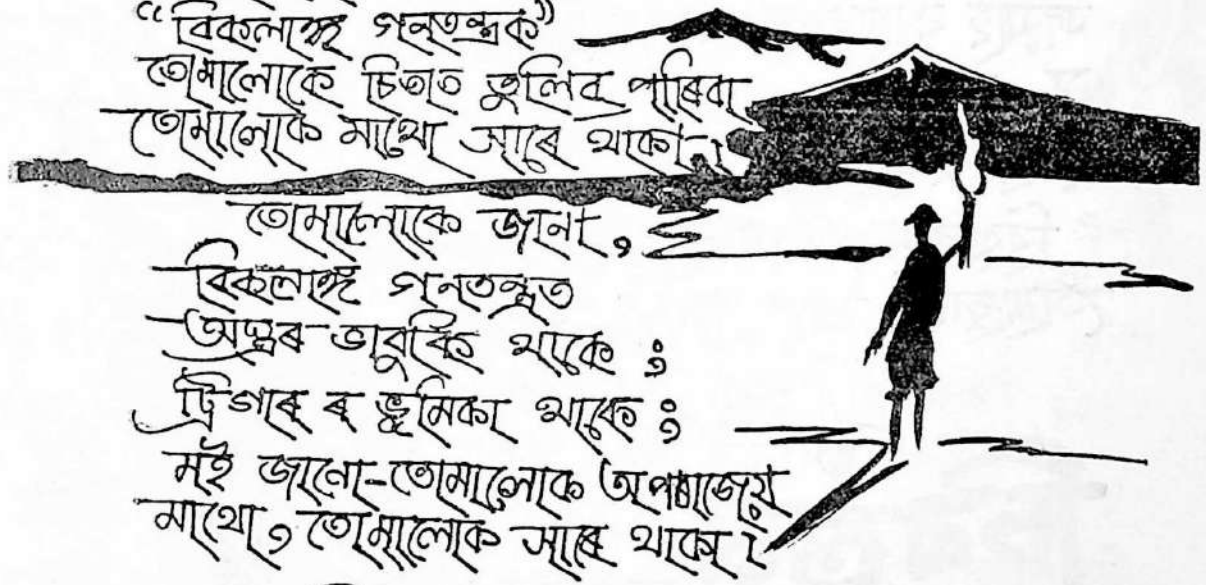 “বিকলাঙ্গ গনতন্ত্ৰক”
তোমালোকে চিতাত তুলিব পাৰিবা
তোমালোক মাথো সাৰে থাকা।
তোমালোকে জানা,
বিকলাঙ্গ গনতন্ত্ৰত
অস্ত্ৰৰ ভাবুকি থাকে;
ট্ৰিগাৰ ৰ ভূমিকা থাকে;
মই জানো-তোমালোক অপৰাজেয়
মাথো, তোমালোক সাৰে থাকা।